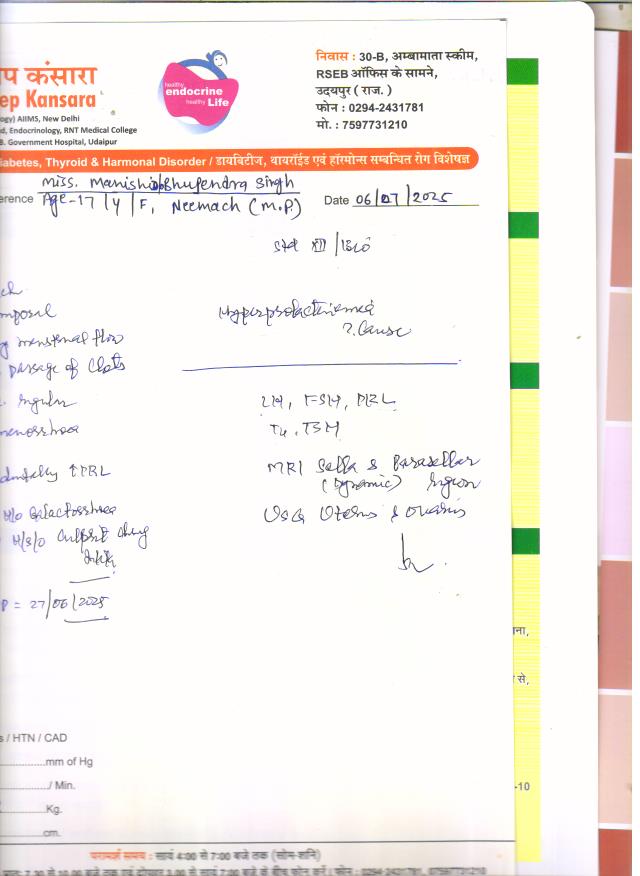 प कंसारा
ep Kansara
ogy) AIIMS, New Delhi
d, Endocrinology, RNT Medical College
B. Government Hospital, Udaipur
healthy
endocrine
healthy
Life
निवास : 30-B, अम्बामाता स्कीम,
RSEB ऑफिस के सामने,
उदयपुर ( राज. )
फोन : 0294-2431781
मो. : 7597731210
iabetes, Thyroid & Harmonal Disorder / डायबिटीज, थायरॉईड एवं हॉरमोन्स सम्बन्धित रोग विशेषज्ञ
Miss. Manisha Bhupendra Singh
erence Age-17/Y/F, Neemach (M.P.) Date 06/07/2025
XII
Hyperprolactinemia
?. Cause
menstrual flow
passage of Clots
LH, FSH, PRL
T4, TSH
↑PRL
MRI Sella & Parasellar
(Dynamic) region
H/o Galactorrhoea
USG Uterus & Ovaries
H/s/o culprit drug
intake
P = 27/06/2025
s / HTN / CAD
mm of Hg
/ Min.
Kg.
cm.
ना,
से,
-10
परामर्श समय : सायं 4:00 से 7:00 बजे तक (सोम-शनि)